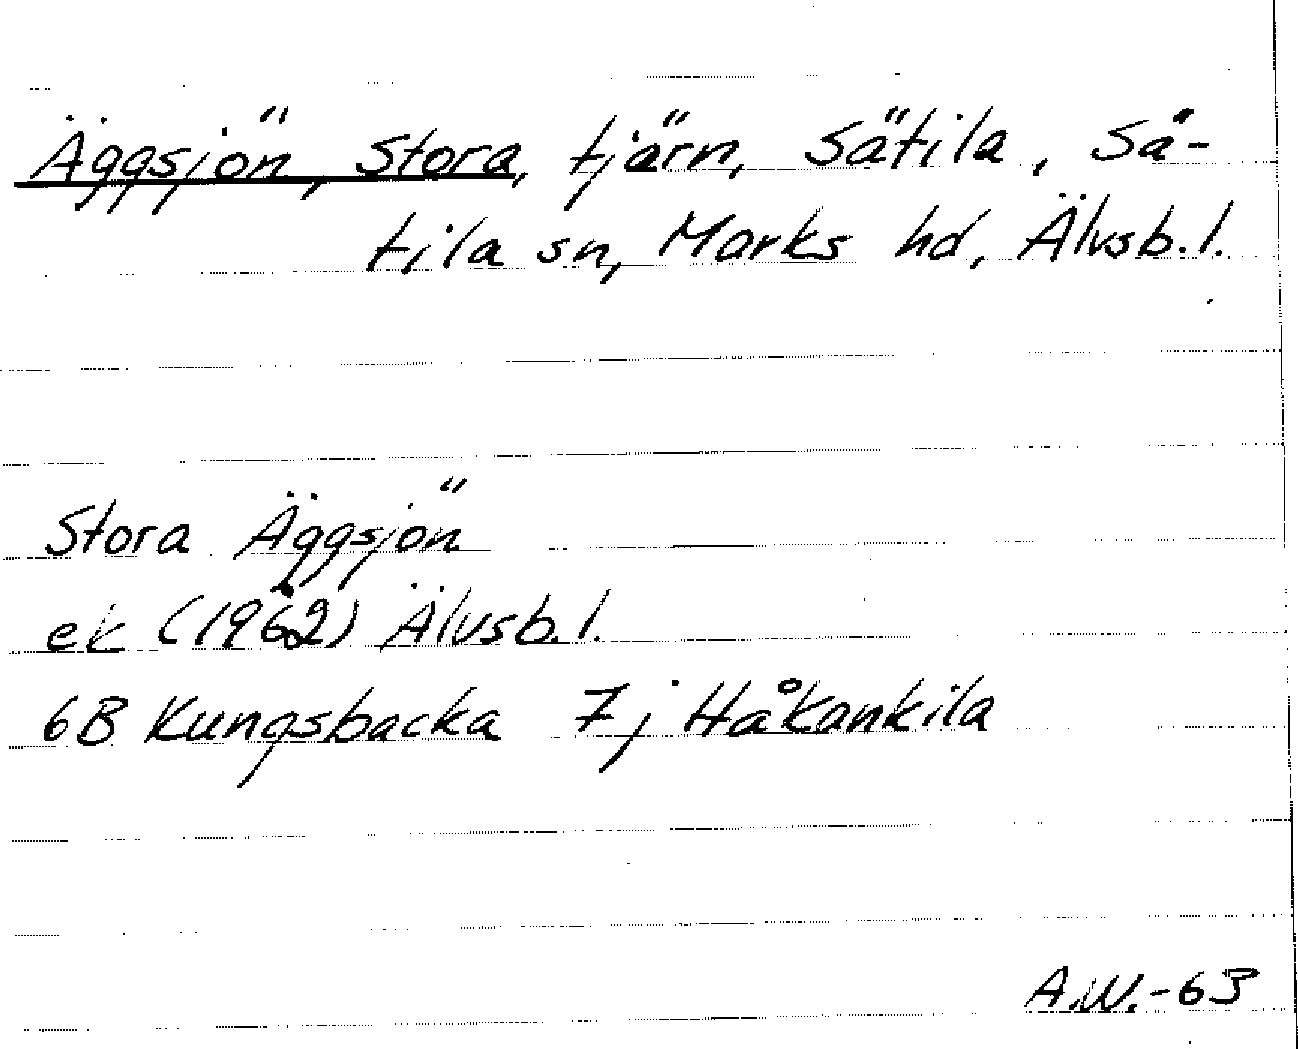 Äggsjön, Stora, tjärn, Sätila, Sä-
tila sn, Marks hd, Älvsb. l.
Stora Äggsjön
ek (1962) Älvsb. l.
6B Kungsbacka 7j Håkankila
A.W.-63